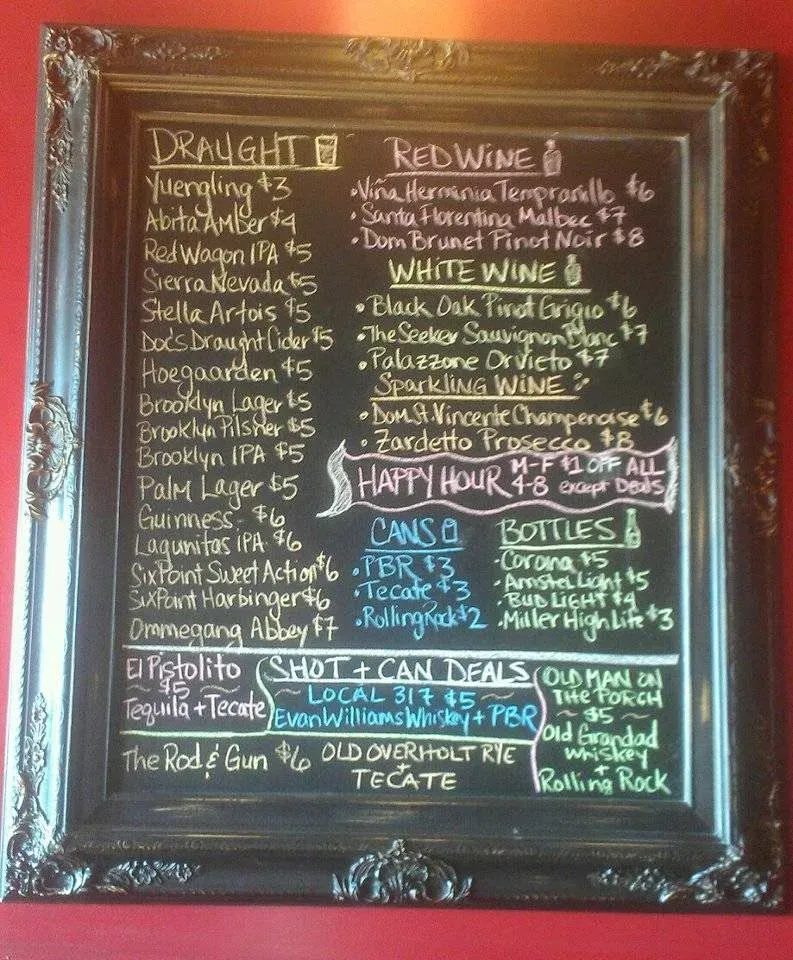 DRAUGHT
Yuengling $3
Abita Amber $4
Red Wagon IPA $5
Sierra Nevada $5
Stella Artois $5
Doc's Draught Cider $5
Hoegaarden $5
Brooklyn Lager $5
Brooklyn Pilsner $5
Brooklyn IPA $5
Palm Lager $5
Guinness - $6
Lagunitas IPA $6
SixPoint Sweet Action $6
SixPoint Harbinger $6
Ommegang Abbey $7
RED WINE
• Viña Herminia Tempranillo $6
• Santa Florentina Malbec $7
• Dom Brunet Pinot Noir $8
WHITE WINE
• Black Oak Pinot Grigio $6
• The Seeker Sauvignon Blanc $7
• Palazzone Orvieto $7
SPARKLING WINE
• Dom. St. Vincente Champenoise $6
• Zardetto Prosecco $8
HAPPY HOUR M-F $1 OFF ALL
4-8 except Deals
CANS
• PBR $3
• Tecate $3
• Rolling Rock $2
BOTTLES
• Corona $5
• Amstel Light $5
• BUD LIGHT $4
• Miller High Life $3
SHOT + CAN DEALS
El Pistolito
~ $5 ~
Tequila + Tecate
~ LOCAL 317 $5 ~
Evan Williams Whiskey + PBR
OLD MAN ON
THE PORCH
~ $5 ~
Old Grandad
Whiskey
+
Rolling Rock
The Rod & Gun $6 OLD OVERHOLT RYE
+
TECATE